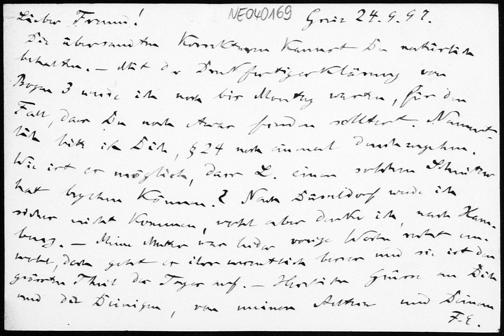 Lieber Freund! NE040169 Graz 24.9.97.
Die übersandten Korrekturen kannst Du natürlich
behalten. – Mit der Druckfertigerklärung von
Bogen 3 werde ich noch bis Montag warten, für den
Fall, dass Du noch etwas finden solltest. Nament-
lich bitte ich Dich, § 24 noch einmal durchzusehen.
Wie ist es möglich, dass L. einen solchen Schnitzer
hat begehen können? Nach Düsseldorf werde ich
sicher nicht kommen, wohl aber denke ich, nach Ham-
burg. – Meine Mutter war leider vorige Woche recht un-
wohl, doch geht es ihr wesentlich besser und sie ist den
grössten Theil des Tages auf. – Herzliche Grüsse an Dich
und die Deinigen, von meinen Eltern und Deinem
F. E.